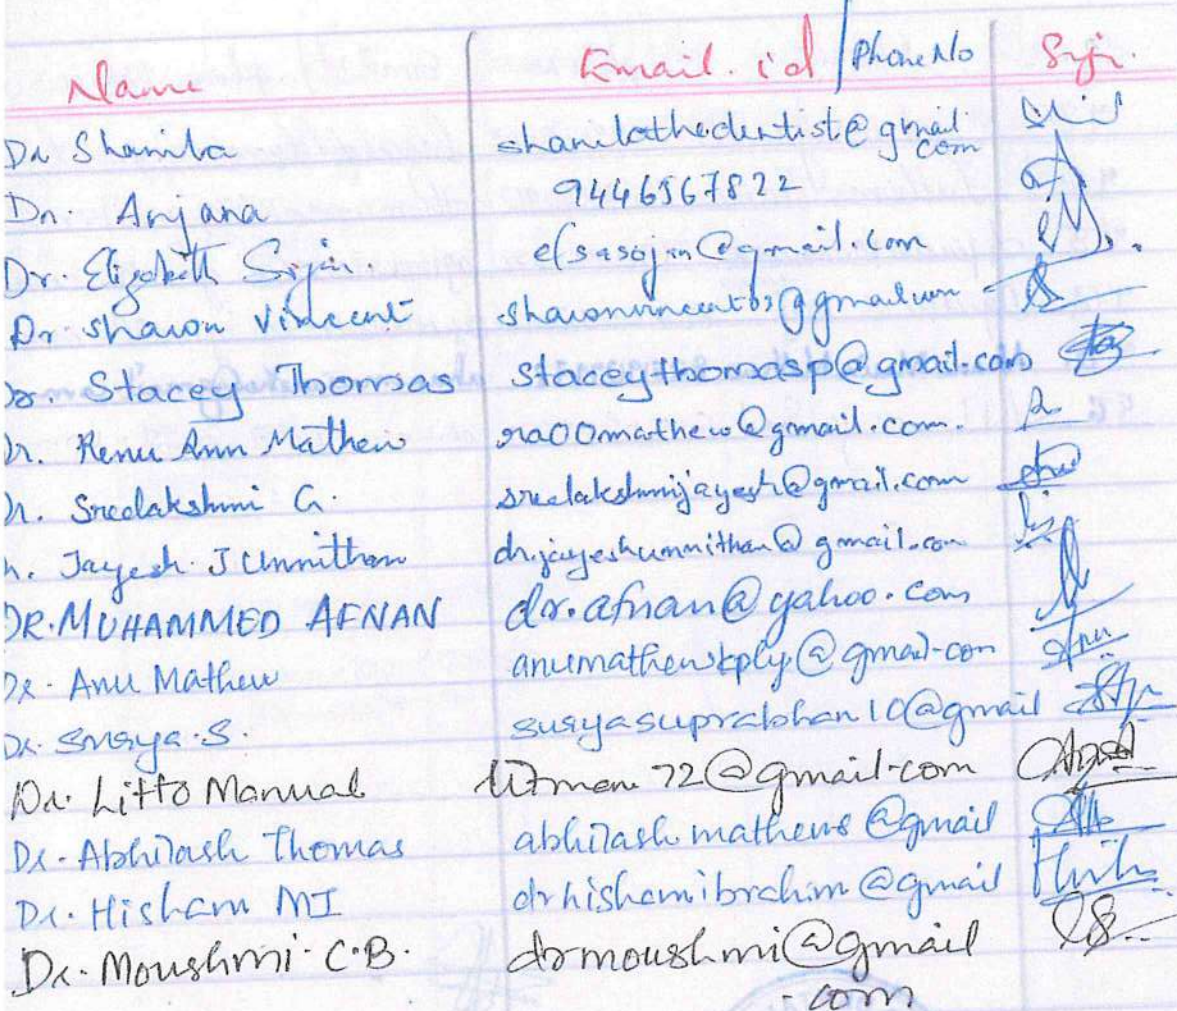 Name Email. id / Phone No Sign.
Dr Shanila shanilathedentist@gmail.com
Dr. Anjana 9446567822
Dr. Elizabeth Sojin
Dr. Sharon Vincent
Dr. Stacey Thomas staceythomasp@gmail.com
Dr. Renu Ann Mathew ra00mathew@gmail.com.
Dr. Sreelakshmi G. sreelakshmijayesh@gmail.com
Dr. Jayesh J Unnithan dr.jayeshunnithan@gmail.com
DR. MUHAMMED AFNAN dr.afnan@yahoo.com
Dr. Anu Mathew anumathewkply@gmail.com
Dr. Surya.S. suryasuprabhan10@gmail
Dr. Litto Manual 72@gmail.com
Dr. Abhilash Thomas abhilash.mathews@gmail
Dr. Hisham MI drhishamibrahim@gmail
Dr. Moushmi.C.B. drmoushmi@gmail
.com